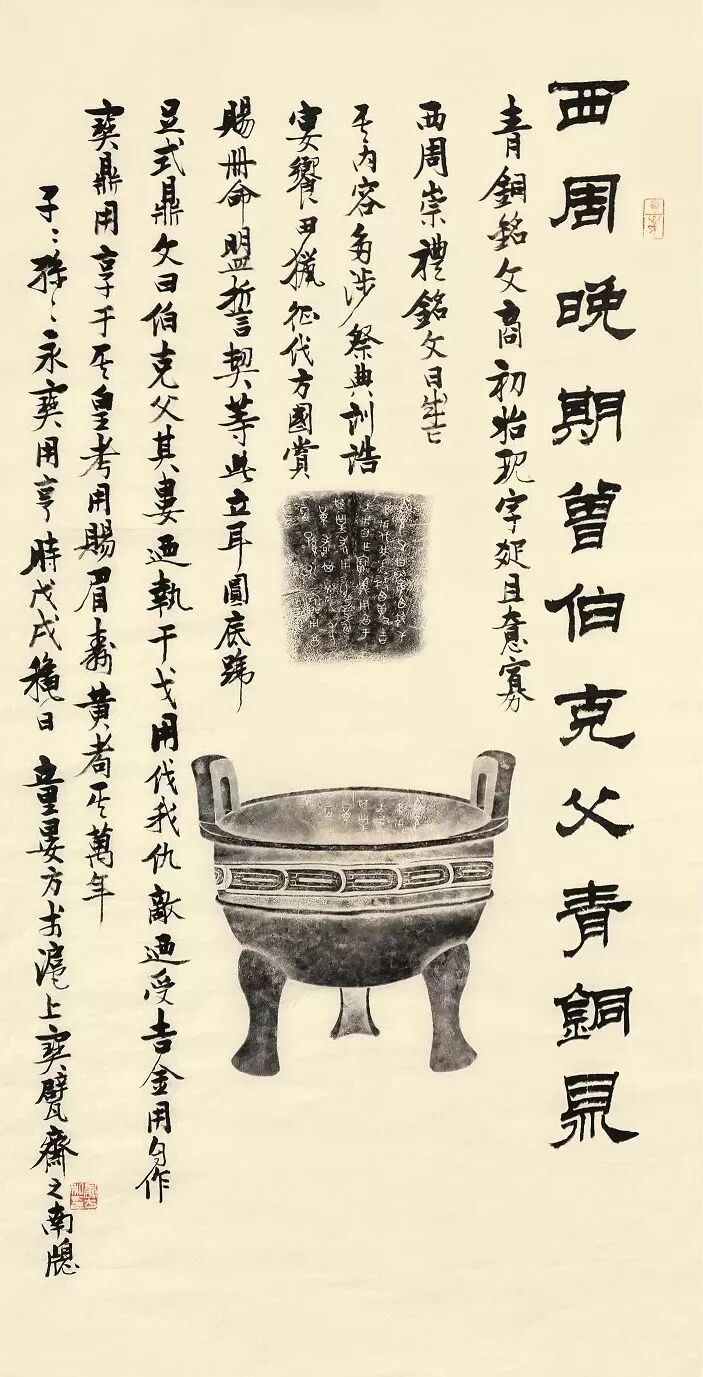 西周晚期曾伯克父青銅鼎
青銅銘文商初始現字疑且意寡
西周崇禮銘文日盛
其內容多涉祭典訓誥
宴饗田獵征伐方國賞
賜冊命盟誓契等此立耳圓底蹄
足式鼎文曰伯克父其婁迺執干戈用伐我仇敵迺受吉金用自作
寶鼎用享于其皇考用賜眉壽黃耇其萬年
子〻孫〻永寶用享 時戊戌穐日 童晏方於滬上寶甓齋之南牕